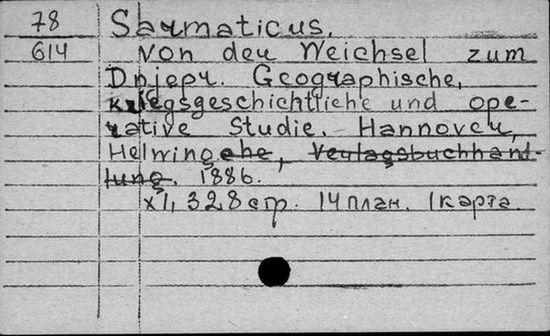 78 Sarmaticus.
614 Von der Weichsel zum
Dnjepr. Geographische,
kriegsgeschichtliche und ope-
rative Studie. Hannover,
Helwingsche, Verlagsbuchhand-
lung. 1886.
XI, 328 стр. 14 план. 1 карта.